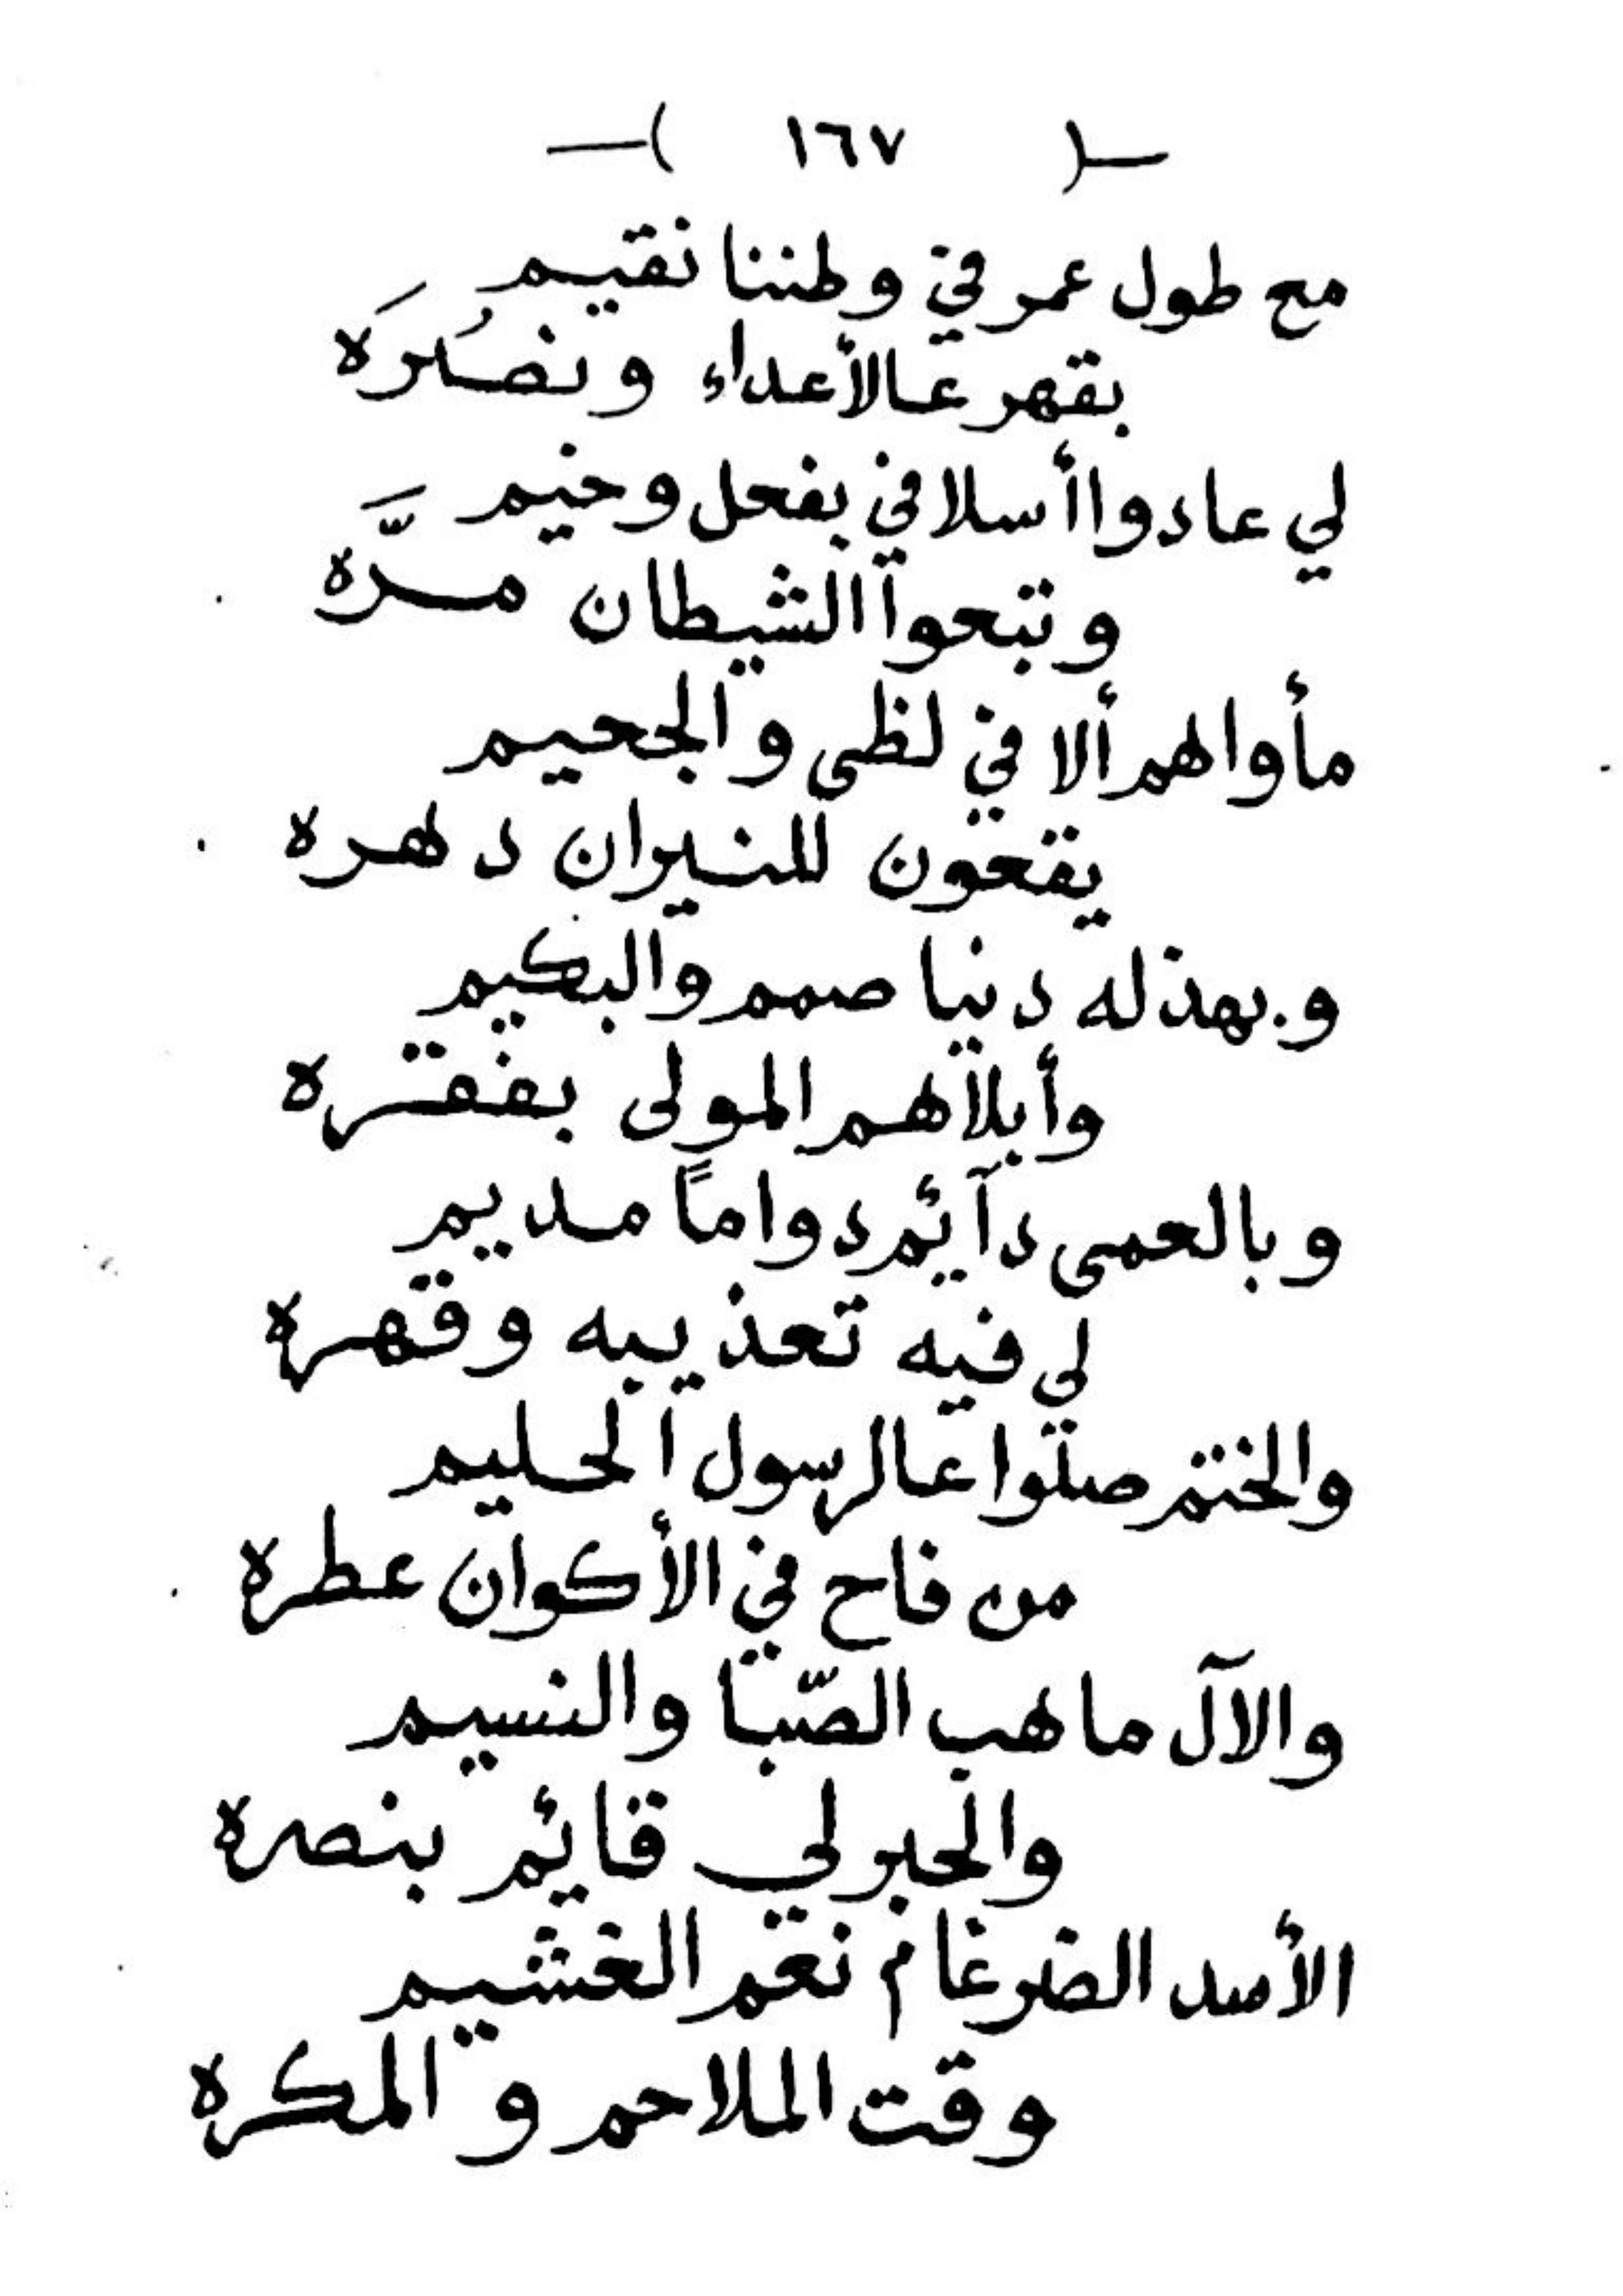 —( ١٦٧ )—
مع طول عمر في وطننا نقيم
بقهر عالأعداء ونصُرَه
لي عادوا أسلافي بفعل وخيم
وتبعوا الشيطان مرَّه
مأواهم ألا في لظى والجحيم
يقعون للنيران دهره
وبهذله دنيا صمم والبكيم
وأبلاهم المولى بفقره
وبالعمى دآئم دواماً مديم
لى فيه تعذيبه وقهره
والختم صلوا عالرسول الحليم
من فاح في الأكوان عطره
والآل ما هب الصّبا والنسيم
والجبولي قائم بنصره
الأسد الضرغام نعم الغشيم
وقت الملاحم والمكره